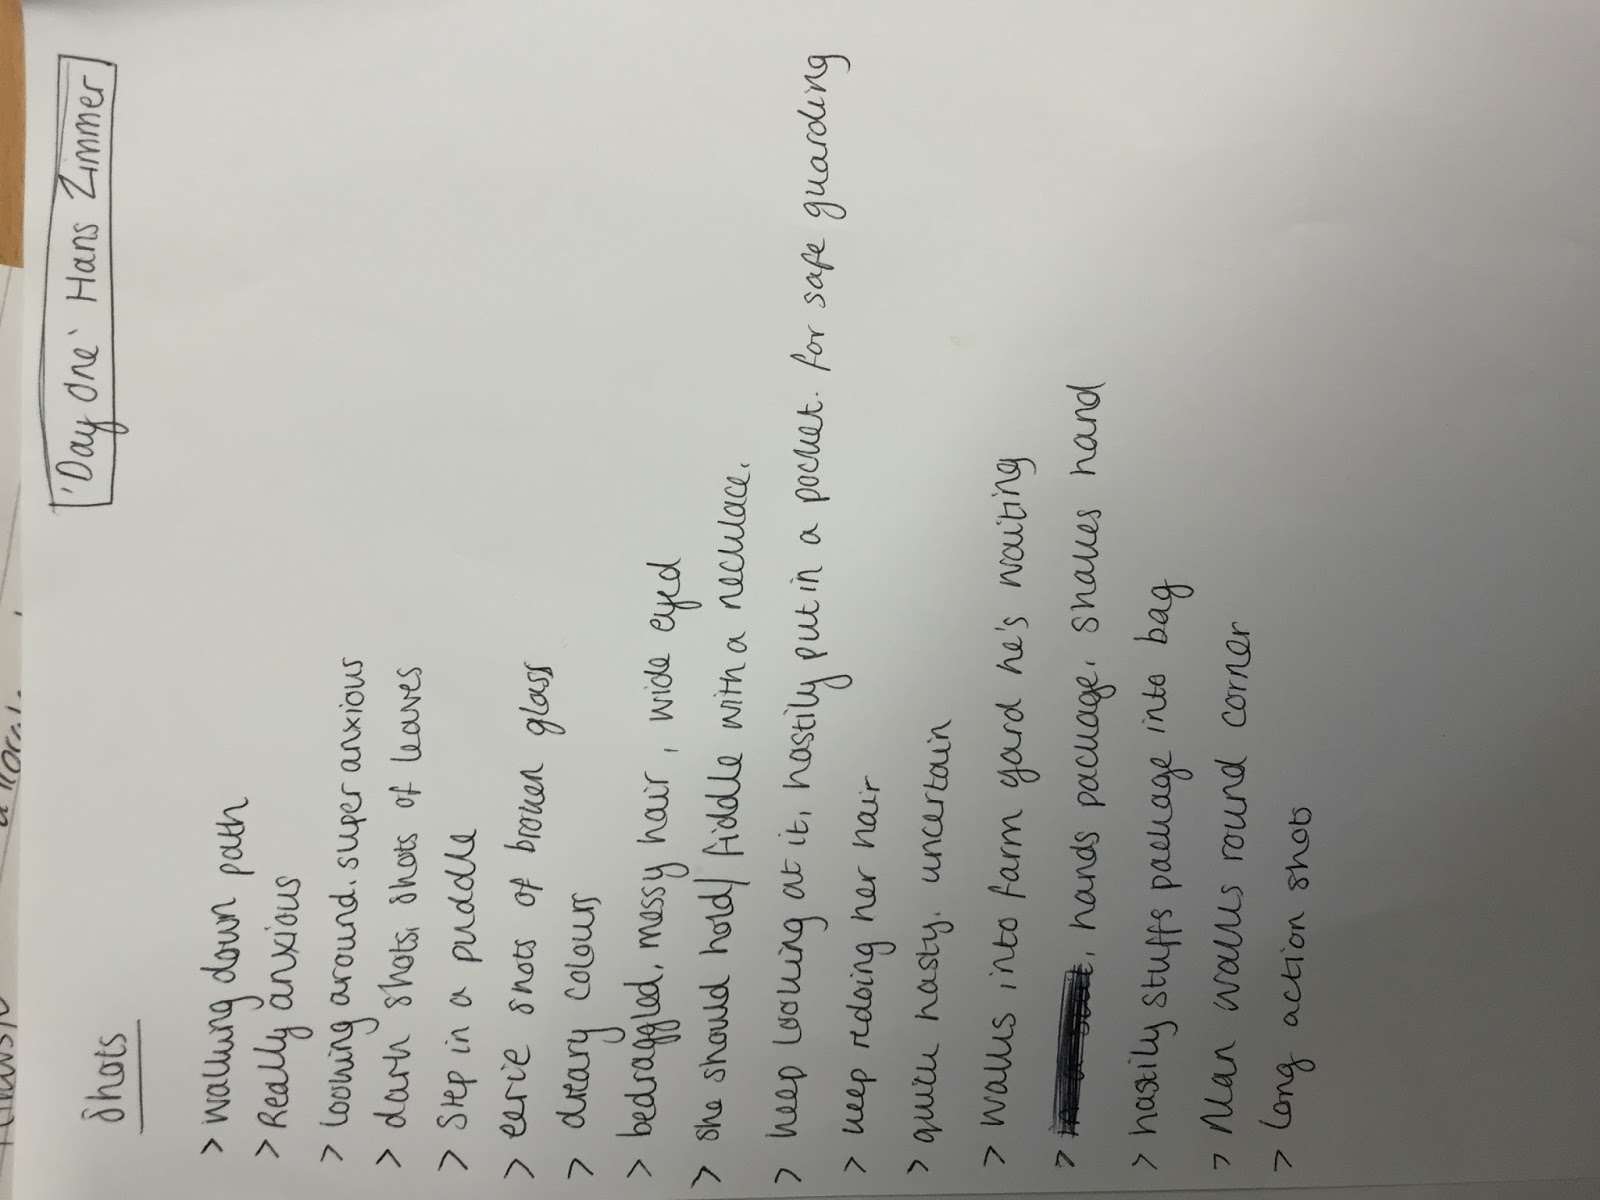 'Day one' Hans Zimmer
Shots
> walking down path
> Really anxious
> looking around. super anxious
> dark shots, shots of leaves
> step in a puddle
> eerie shots of broken glass
> dreary colours
> bedraggled, messy hair, wide eyed
> she should hold/fiddle with a necklace.
> keep looking at it, hastily put in a pocket. for safe guarding
> keep redoing her hair
> quick hasty. uncertain
> walks into farm yard he's waiting
> , hands package. shakes hand
> hastily stuffs package into bag
> Man walks round corner
> long action shots